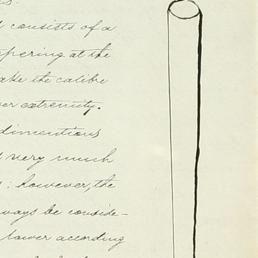 consists of a
pering at the
the calibre
extremity.
dimentions
very much
: however, the
ways be conside-
lower according